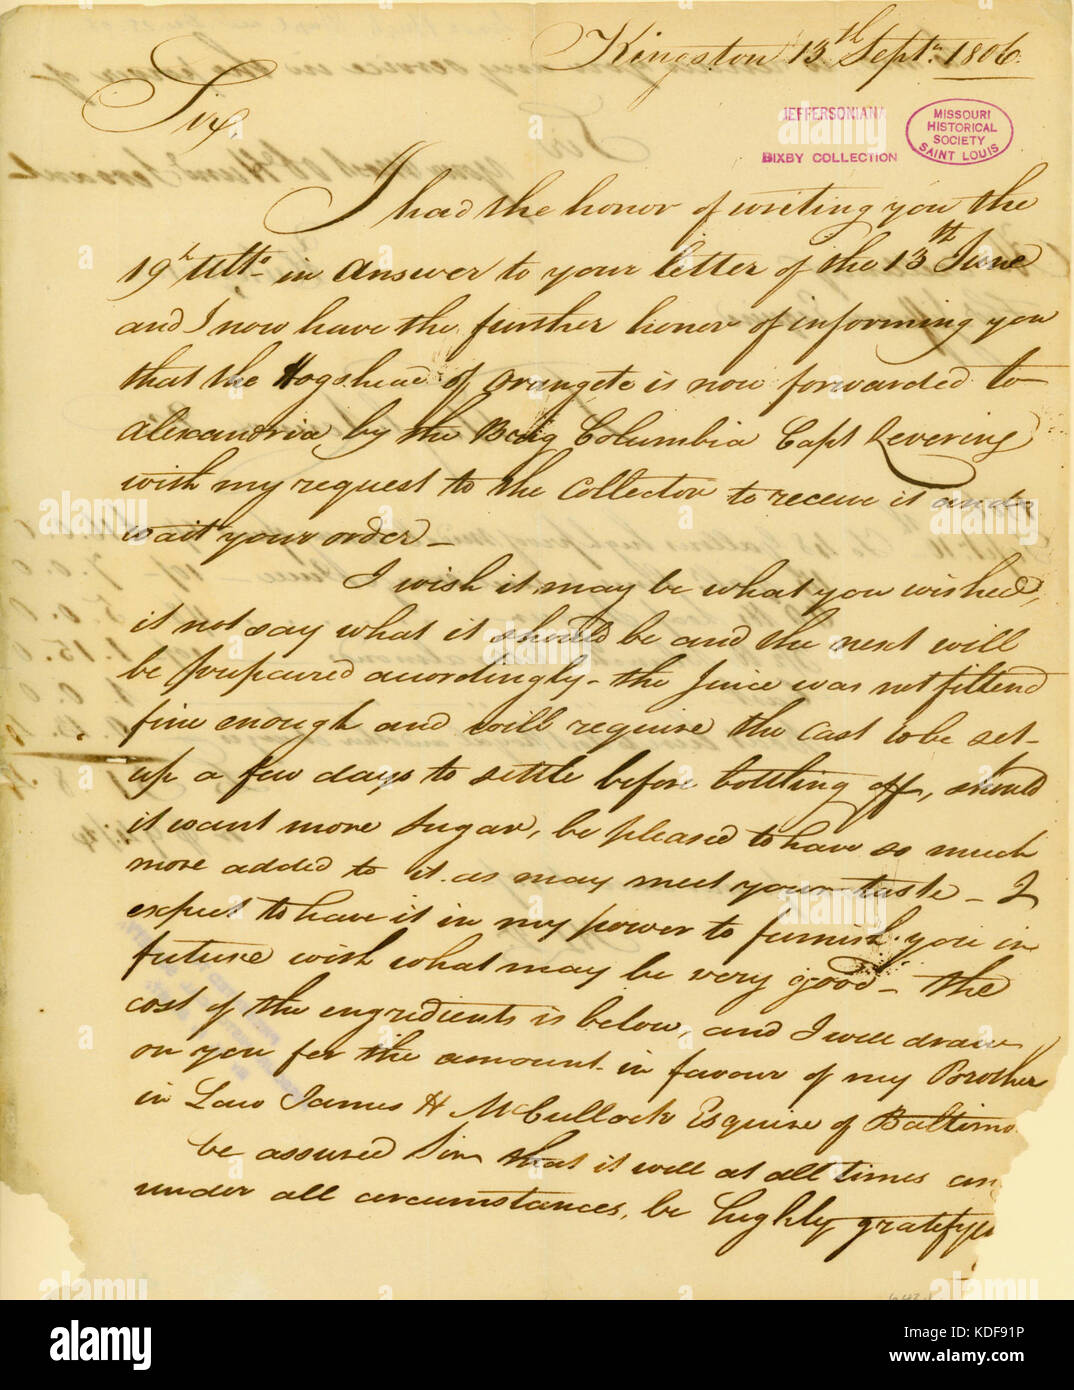 Kingston 13th Septr. 1806.
Sir,
JEFFERSONIANA
MISSOURI
HISTORICAL
SOCIETY
SAINT LOUIS
BIXBY COLLECTION
I had the honor of writing you the
19th ulto. in answer to your letter of the 13th June
and I now have the further honor of informing you
that the Hogshead of Orangete is now forwarded to
Alexandria, by the Brig Columbia Capt Levering
with my request to the Collector to receive it and
wait your order _
I wish it may be what you wished,
if not say what it should be and the next will
be prepaired accordingly - the Juice was not filterd
fine enough and will require the Cast to be set
up a few days to settle before bottling off, should
it want more Sugar, be pleased to have so much
more added to it as may meet your taste _ I
expect to have it in my power to furnish you in
future with what may be very good _ the
cost of the engredients is below, and I will draw
on you for the amount in favour of my Brother
in Law James H McCullock Esquire of Baltimo
be assured Sir that it will at all times an
under all circumstances, be highly gratifyi
alamy
Image ID: KDF91P
www.alamy.com